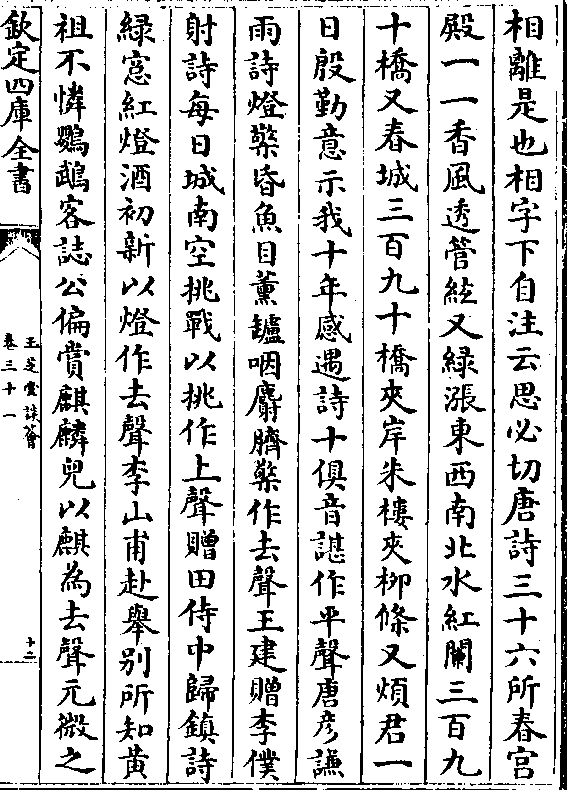 相離是也相字下自注云思必切唐詩三十六所春宫
殿一一香風透管絃又緑漲東西南北水紅闌三百九
十橋又春城三百九十橋夾岸朱樓夾柳條又煩君一
日殷勤意示我十年感遇詩十俱音諶作平聲唐彦謙
雨詩燈蘂昏魚目薫鑪咽麝臍蘂作去聲王建贈李僕
射詩每日城南空挑戰以挑作上聲贈田侍中歸鎮詩
緑窓紅燈酒初新以燈作去聲李山甫赴舉别所知黄
祖不憐鸚鵡客誌公偏賞麒麟兒以麒為去聲元微之
欽定四庫全書
玉芝堂談薈
卷三十一
十二